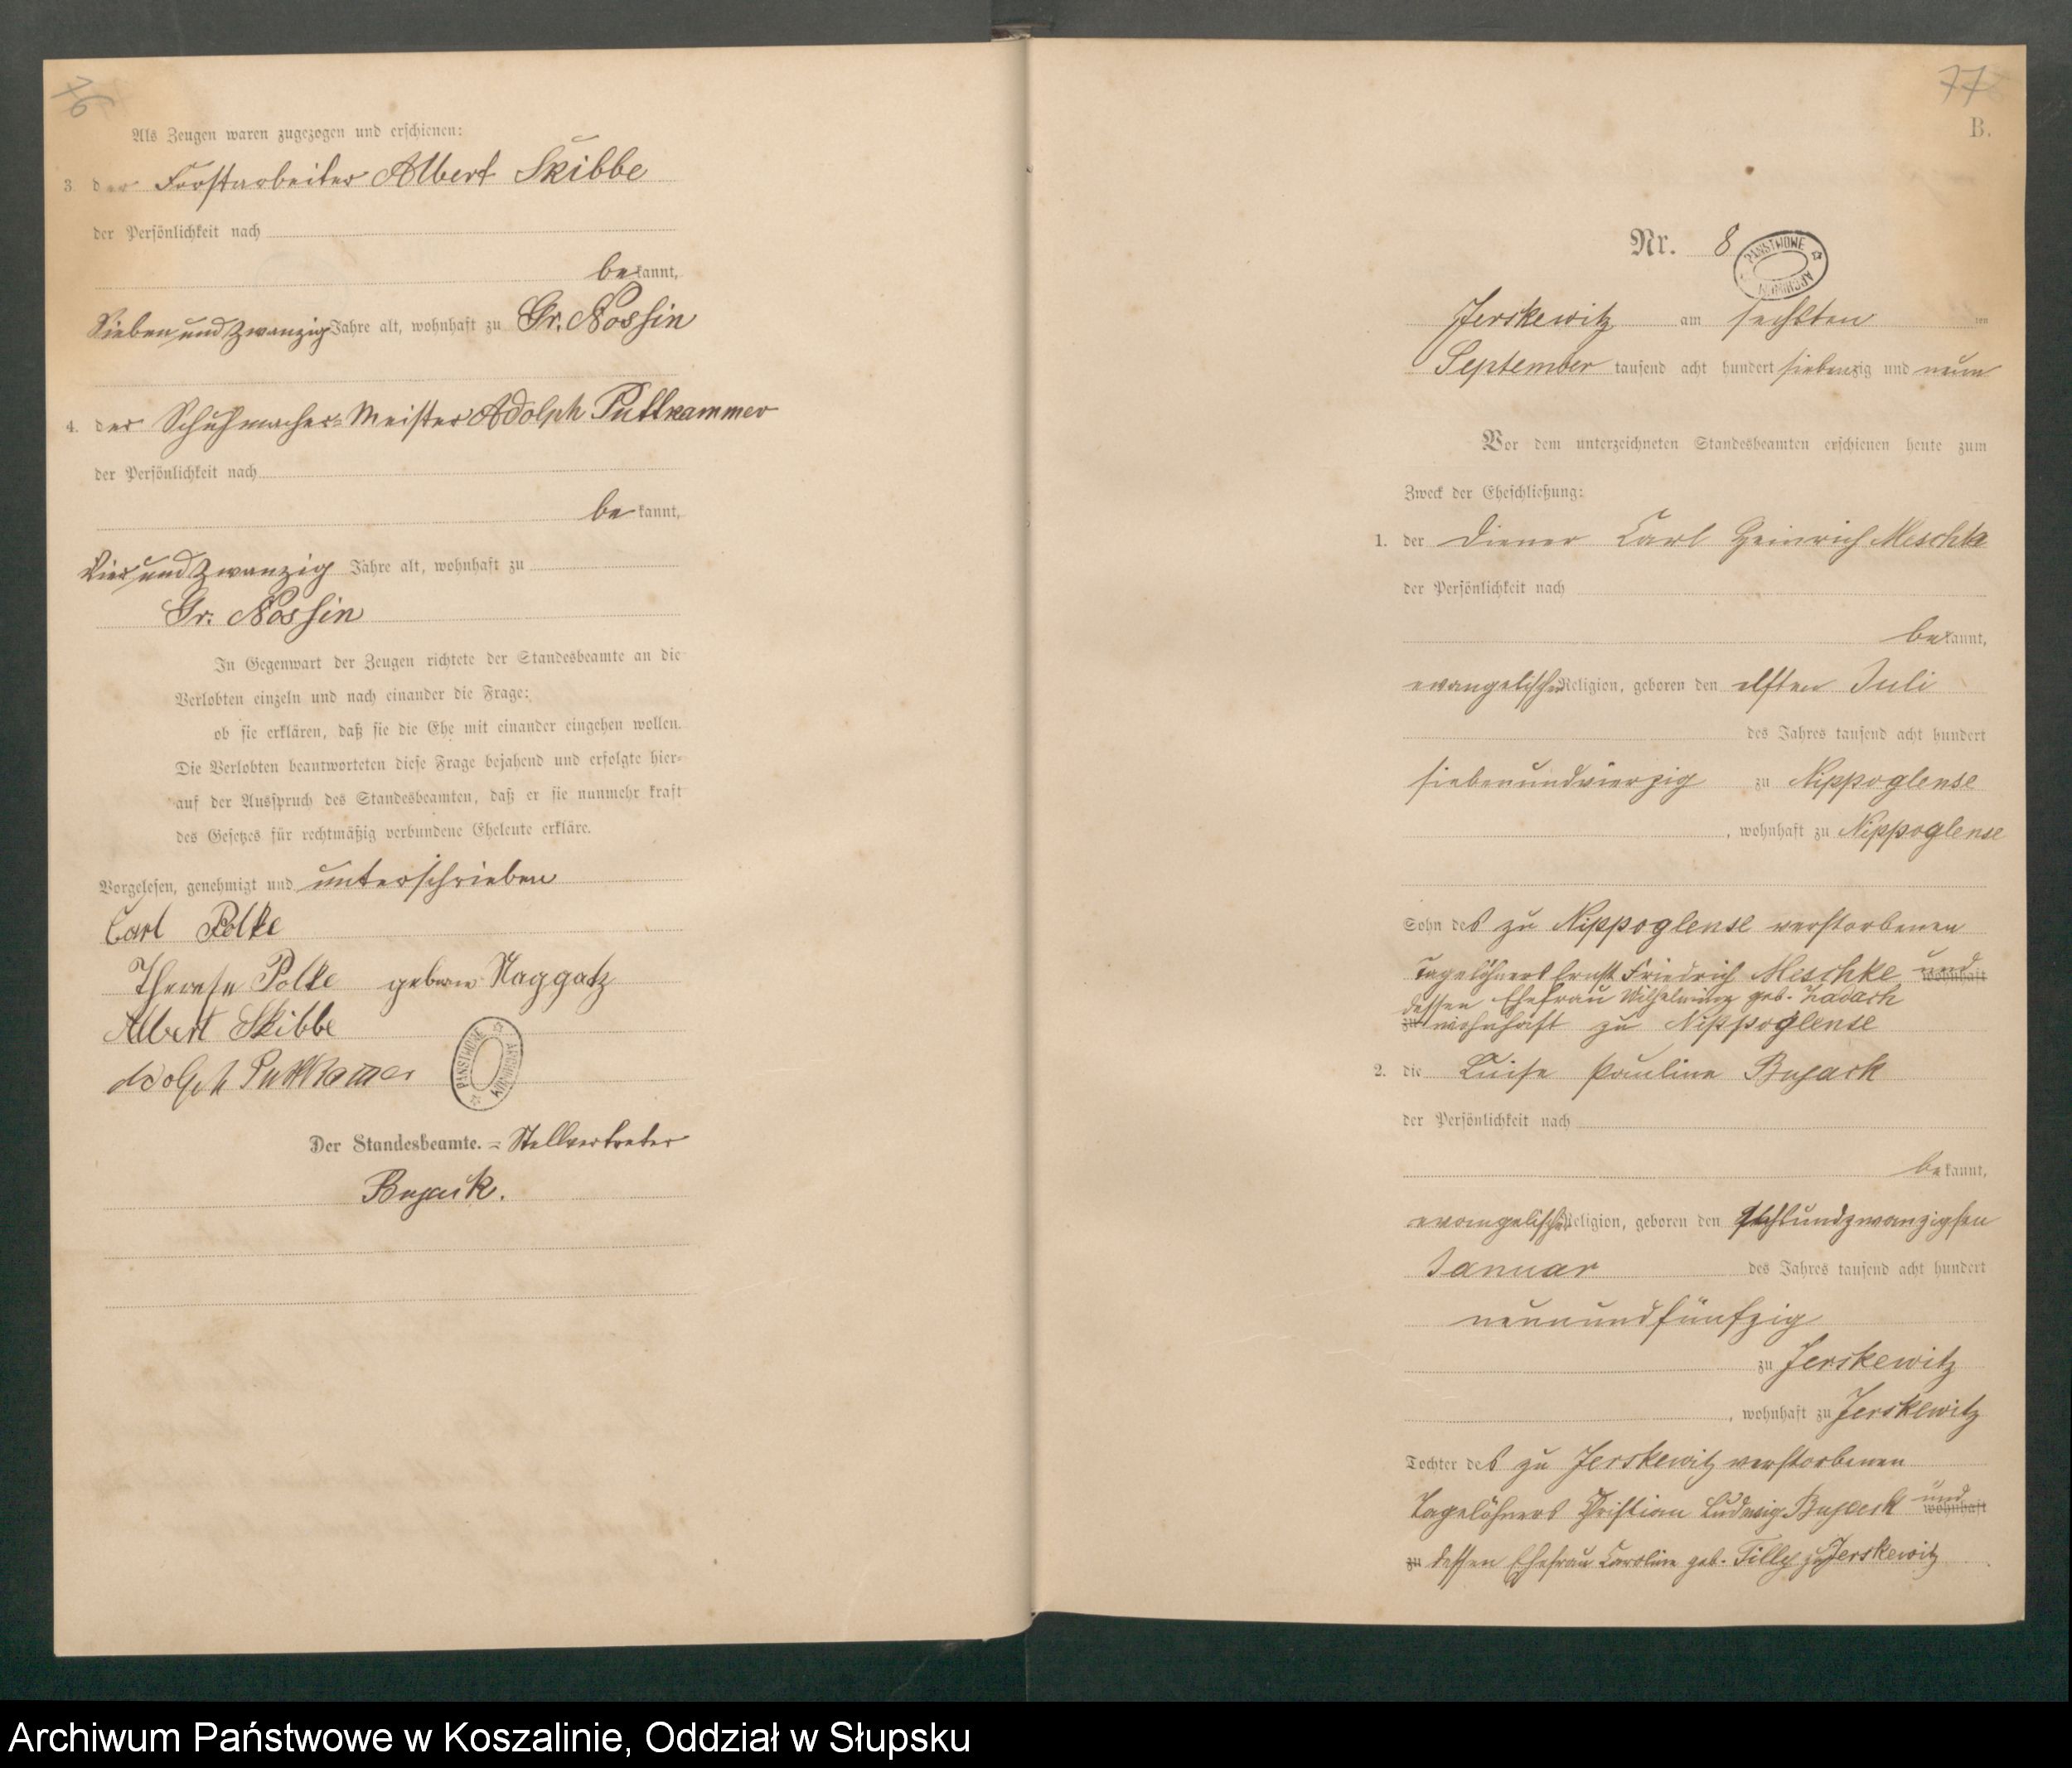 76
Als Zeugen waren zugezogen und erschienen:
3. der Forstarbeiter Albert Skibbe
der Persönlichkeit nach
bekannt,
Sieben und zwanzig Jahre alt, wohnhaft zu Gr. Nossin
4. der Schuhmacher-Meister Adolph Puttkammer
der Persönlichkeit nach
bekannt,
Vier und zwanzig Jahre alt, wohnhaft zu
Gr. Nossin
In Gegenwart der Zeugen richtete der Standesbeamte an die
Verlobten einzeln und nach einander die Frage:
ob sie erklären, daß sie die Ehe mit einander eingehen wollen.
Die Verlobten beantworteten diese Frage bejahend und erfolgte hier-
auf der Ausspruch des Standesbeamten, daß er sie nunmehr kraft
des Gesetzes für rechtmäßig verbundene Eheleute erkläre.
Vorgelesen, genehmigt und unterschrieben
Carl Polke
Therese Polke geborne Naggatz
Albert Skibbe
Adolph Puttkamer
ARCHIWUM PAŃSTWOWE
Der Standesbeamte. = Stellvertreter
Bujack.
77
B.
Nr. 8
ARCHIWUM PAŃSTWOWE
Jerskewitz am sechsten ten
September tausend acht hundert siebenzig und neun
Vor dem unterzeichneten Standesbeamten erschienen heute zum
Zweck der Eheschließung:
1. der Diener Carl Heinrich Meschke
der Persönlichkeit nach
bekannt,
evangelischer Religion, geboren den elften Juli
des Jahres tausend acht hundert
siebenundvierzig zu Nippoglense
, wohnhaft zu Nippoglense
Sohn des zu Nippoglense verstorbenen
Tagelöhners Ernst Friedrich Meschke und wohnhaft
dessen Ehefrau Wilhelmine geb. Zadach
zu wohnhaft zu Nippoglense
2. die Luise Pauline Bujack
der Persönlichkeit nach
bekannt,
evangelischer Religion, geboren den achtundzwanzigsten
Januar des Jahres tausend acht hundert
neunundfünfzig
zu Jerskewitz
, wohnhaft zu Jerskewitz
Tochter des zu Jerskewitz verstorbenen
Tagelöhners Christian Ludwig Bujack und wohnhaft
zu dessen Ehefrau Caroline geb. Tilly zu Jerskewitz
Archiwum Państwowe w Koszalinie, Oddział w Słupsku